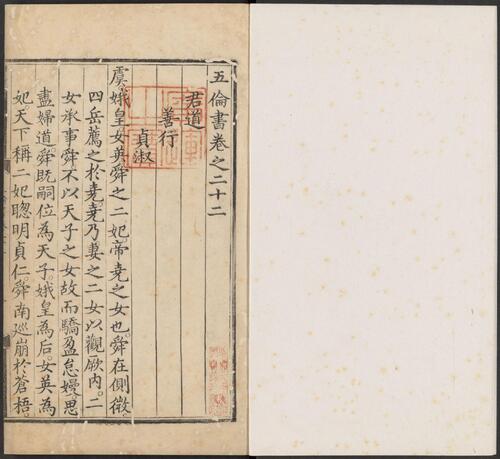 五倫書卷之二十二
君道
善行
貞淑
虞娥皇女英舜之二妃帝堯之女也舜在側微
四岳薦之於堯堯乃妻之二女以觀厥內二
女承事舜不以天子之女故而驕盈怠嫚思
盡婦道舜既嗣位為天子娥皇為后女英為
妃天下稱二妃聰明貞仁舜南巡崩於蒼梧